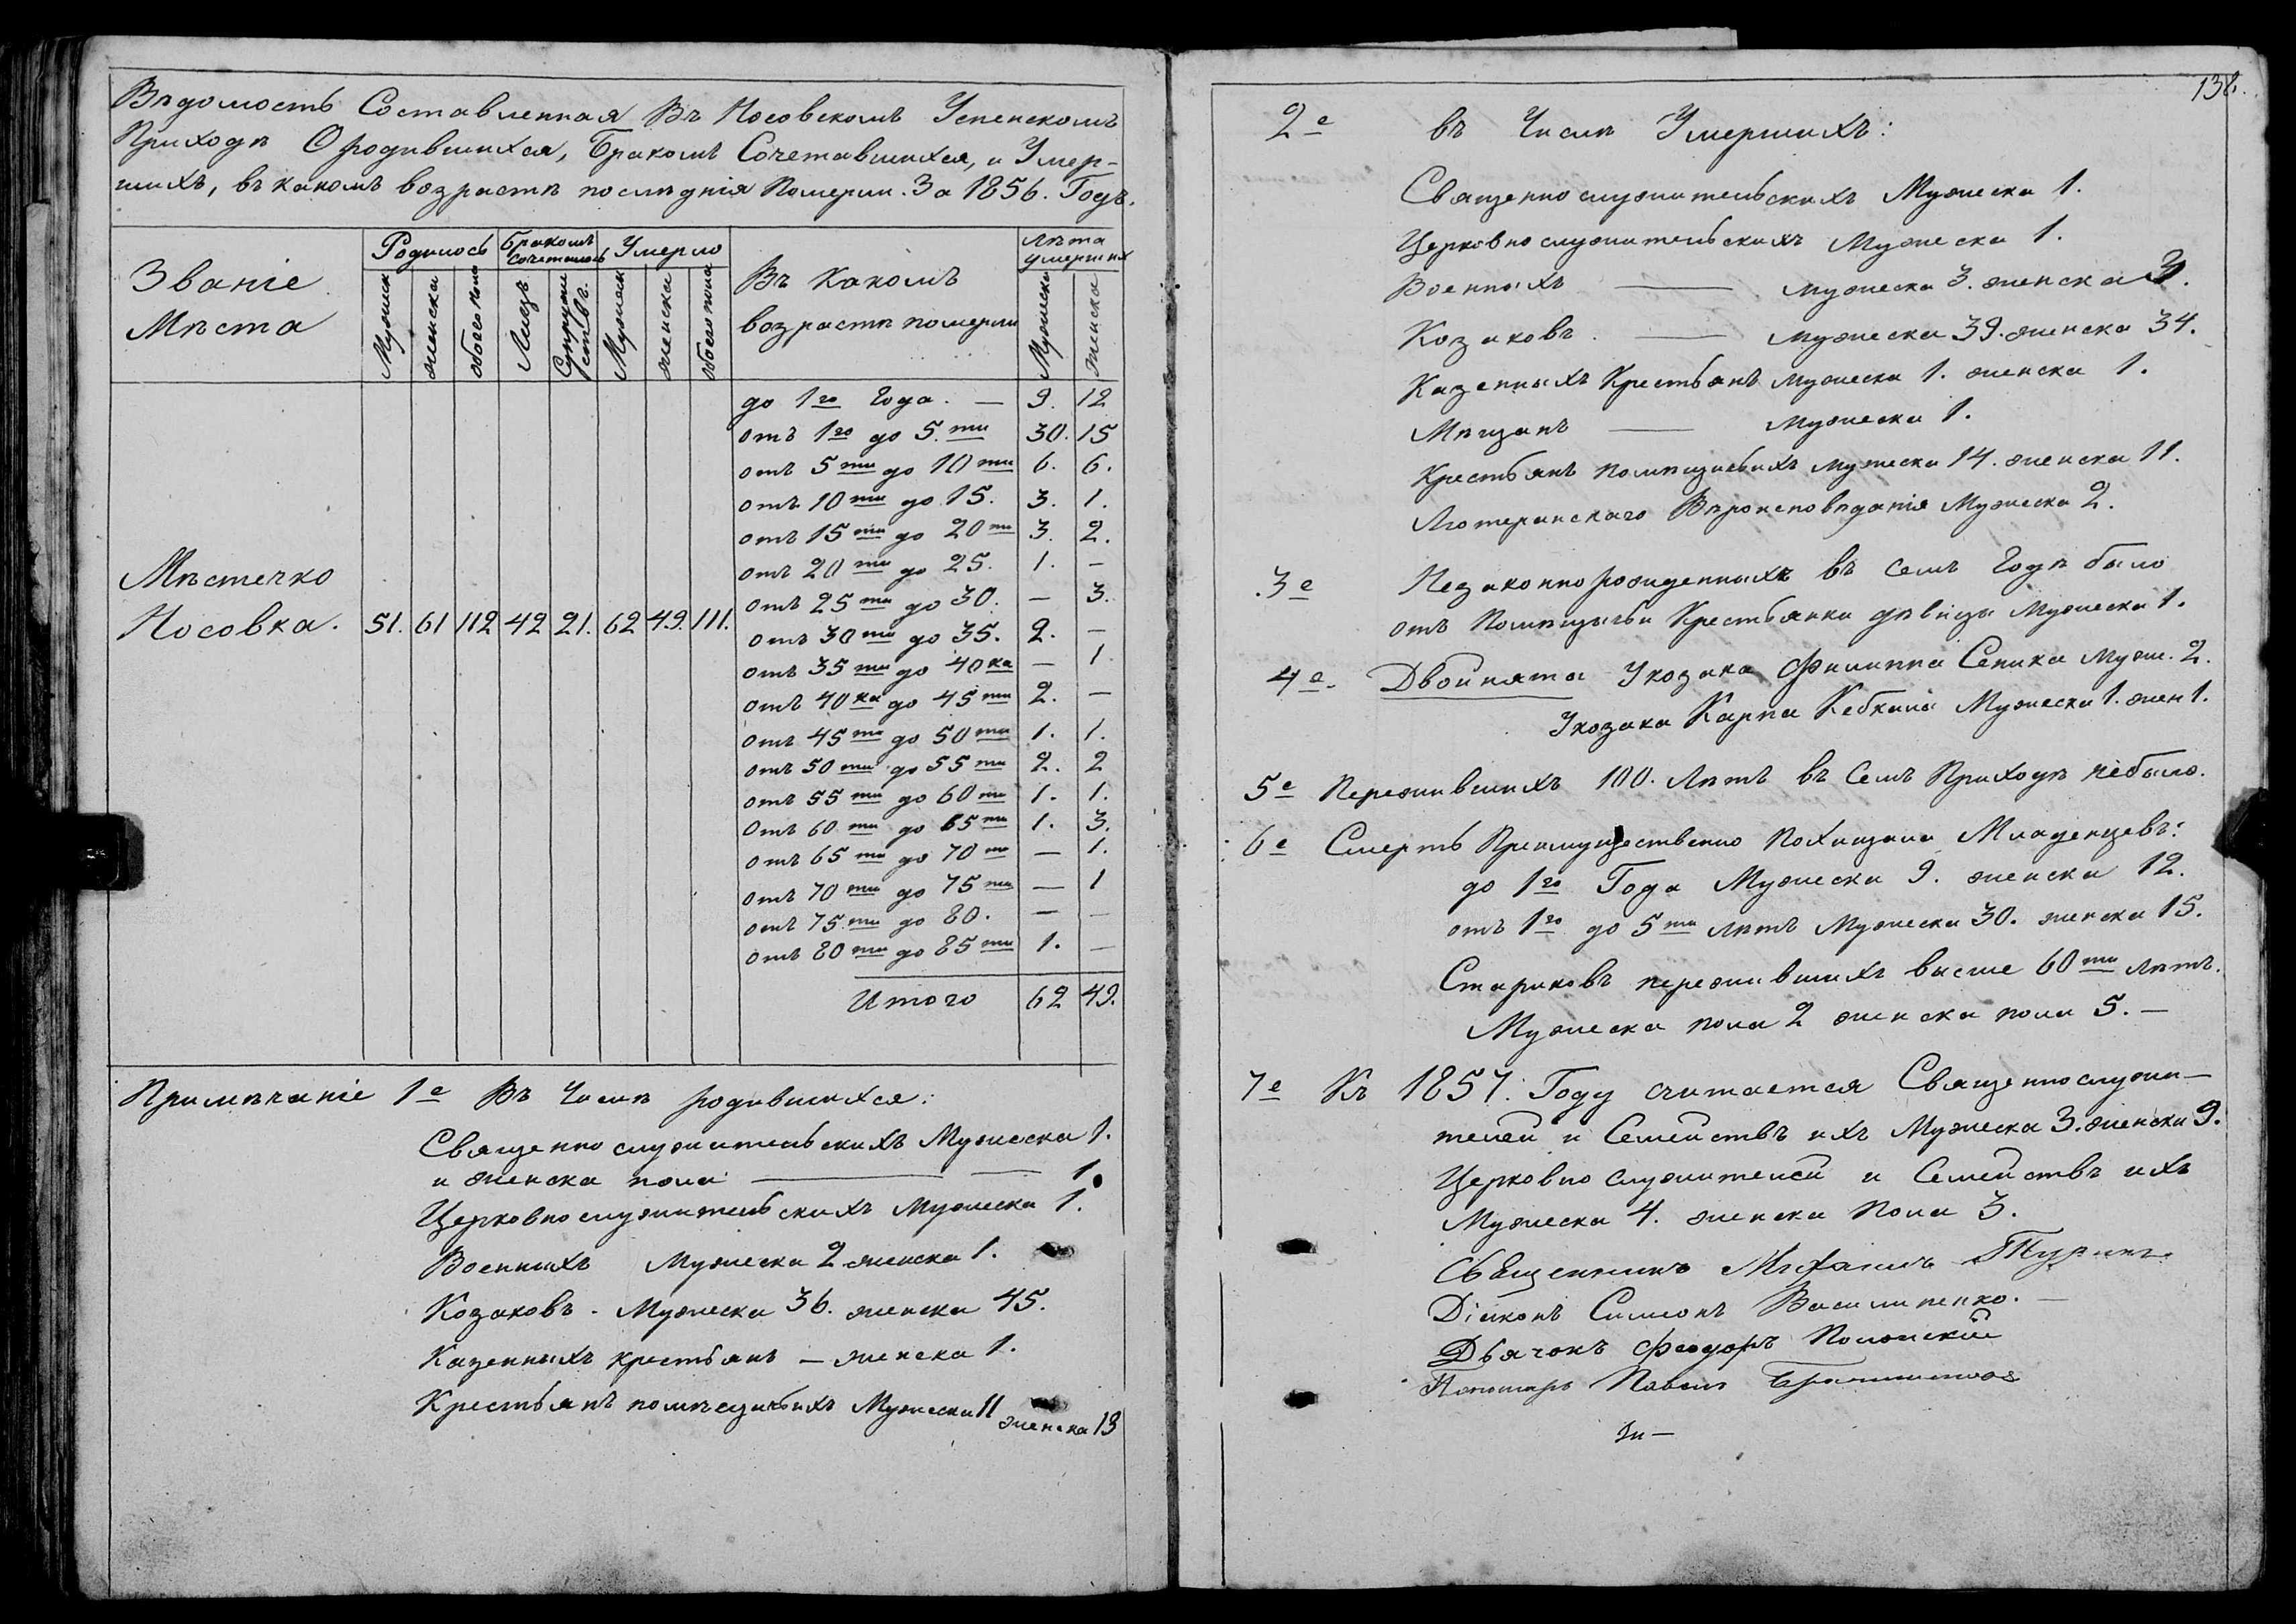 Вѣдомость Составленная Въ Носовскомъ Успенскомъ
Приходѣ О родившихся, Бракомъ Сочетавшихся, и Умер-
шихъ, въ какомъ возрастѣ послѣднія Померли. За 1856. Годъ.
Званіе Мѣста
Родилось
Бракомъ сочеталось
Умерло
Въ какомъ возрастѣ померли
лѣта умершихъ
Мужеск
женска
обоего пола
Лицъ
Супружествъ.
Мужеск
женска
обоего пола
Мужеска
женска
Мѣстечко
Носовка. 51. 61 112 42 21. 62 49. 111.
до 1го Года. — 9. 12
отъ 1го до 5.ти 30. 15
отъ 5ти до 10ти 6. 6.
отъ 10ти до 15. 3. 1.
отъ 15ти до 20ти 3. 2.
отъ 20ти до 25. 1. —
отъ 25ти до 30. — 3.
отъ 30ти до 35. 2. —
отъ 35ти до 40ка — 1
отъ 40ка до 45ти 2. —
отъ 45ти до 50ти 1. 1.
отъ 50ти до 55ти 2. 2
отъ 55ти до 60ти 1. 1.
отъ 60ти до 65ти 1. 3.
отъ 65ти до 70ти — 1.
отъ 70ти до 75ти — 1
отъ 75ти до 80. — —
отъ 80ти до 85ти 1. —
Итого 62 49.
Примѣчаніе 1е Въ Числѣ родившихся:
Священно служительскихъ Мужеска 1.
и женска пола — — 1.
Церковнослужительскихъ Мужеска 1.
Военныхъ Мужеска 2 женска 1.
Козаковъ - Мужеска 36. женска 45.
Казенныхъ крестьянъ — женска 1.
Крестьянъ помѣщичьихъ Мужеска 11 женска 13
138.
2е въ Числѣ Умершихъ:
Священнослужительскихъ Мужеска 1.
Церковнослужительскихъ Мужеска 1.
Военныхъ — мужеска 3. женска 3.
Козаковъ. — мужеска 39. женска 34.
Казенныхъ Крестьянъ мужеска 1. женска 1.
Мѣщанъ — Мужеска 1.
Крестьянъ помѣщичьихъ мужеска 14. женска 11.
Лютеранскаго Вѣроисповѣданія Мужеска 2.
3е Незаконнорожденныхъ въ семъ Годѣ было
отъ Помѣщичьи Крестьянки дѣвицы Мужеска 1.
4е. Двойнята Укозака Филиппа Сепика муж. 2.
Укозака Карпа Кебкала Мужеска 1. жен 1.
5е Пережившихъ 100. Лѣтъ въ Семъ Приходѣ небыло.
6е Смерть Преимущественно Похищала Младенцевъ:
до 1го Года Мужеска 9. женска 12.
отъ 1го до 5ти лѣтъ Мужеска 30. женска 15.
Стариковъ пережившихъ высше 60ти лѣтъ.
Мужеска пола 2 женска пола 5. —
7е Къ 1857. Году считается Священнослужи-
телей и Семействъ ихъ Мужеска 3. женска 9.
Церковно служителей и Семействъ ихъ
Мужеска 4. женска Пола 3.
Священникъ Михаилъ
Діаконъ Симеонъ Василенко. —
Дьячокъ Феодоръ Полонскій
Пономарь Павелъ